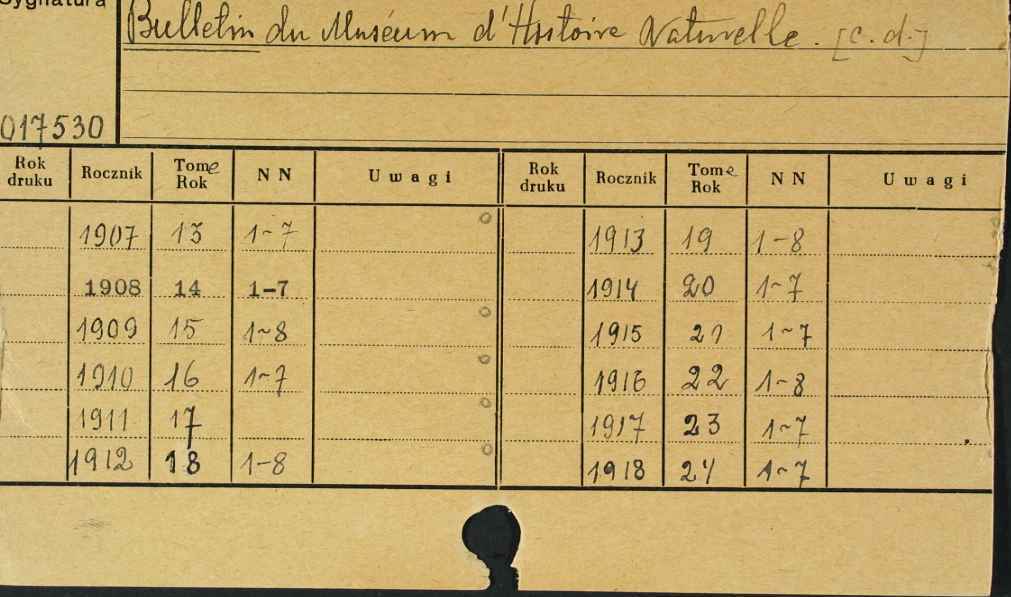 Sygnatura
Bulletin du Muséum d'Histoire Naturelle. [c.d.]
017530
Rok druku Rocznik Tome Rok NN Uwagi Rok druku Rocznik Tome Rok NN Uwagi
1907 13 1-7 1913 19 1-8
1908 14 1-7 1914 20 1-7
1909 15 1-8 1915 21 1-7
1910 16 1-7 1916 22 1-8
1911 17 1917 23 1-7
1912 18 1-8 1918 24 1-7